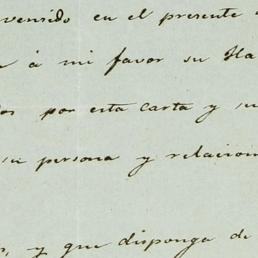 venido en el presente
á mi favor su Ha
por esta carta y su
su persona y relacion
y que disponga de